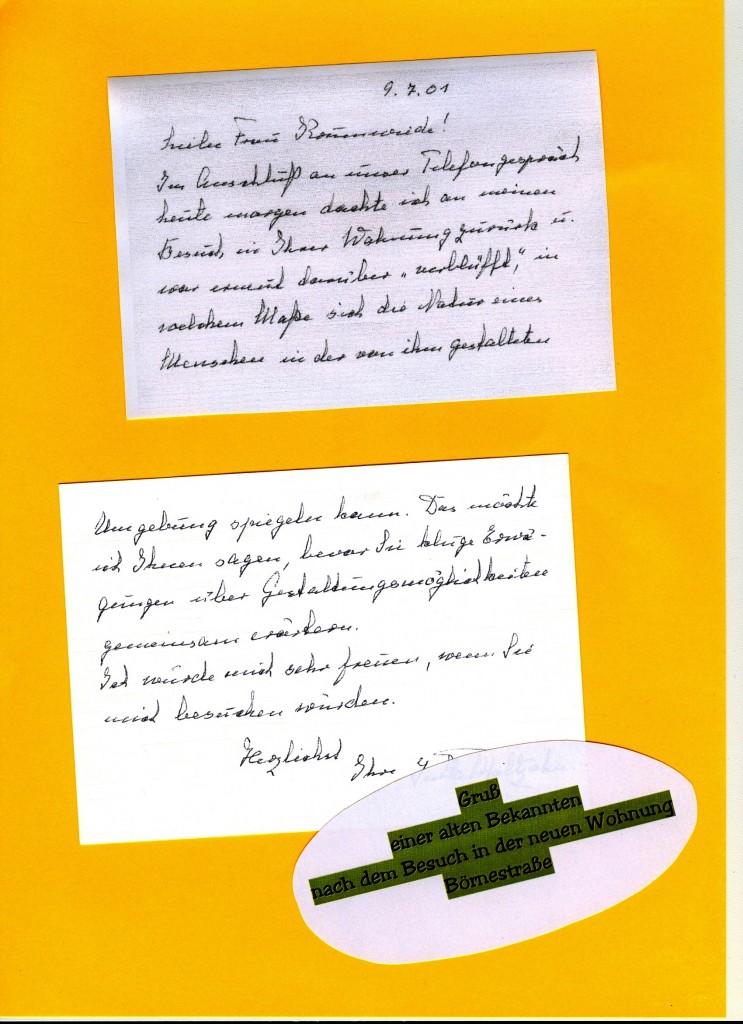 9.7.01
Liebe Frau
Im Anschluß an unser Telefongespräch
heute morgen dachte ich an meinen
Besuch in Ihrer Wohnung zurück u.
war erneut darüber „verblüfft“, in
welchem Maße sich die Natur eines
Menschen in der von ihm gestalteten
Umgebung spiegeln kann. Das möchte
ich Ihnen sagen, bevor Sie kluge Erwä-
gungen über Gestaltungsmöglichkeiten
gemeinsam erörtern.
Ich würde mich sehr freuen, wenn Sie
mich besuchen würden.
Herzlichst Ihre
Gruß
einer alten Bekannten
nach dem Besuch in der neuen Wohnung
Börnestraße